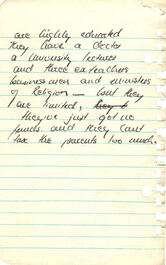 are highly educated
they have a Doctor
a University lecturer
and three ex teachers
business men and ministers
of Religion — but they
are limited,
they've just got no
funds. and they can't
tax the parents too much.